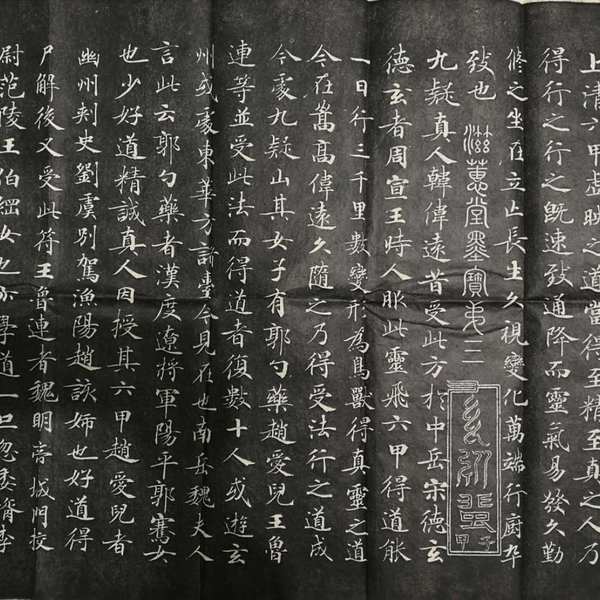 上清六甲虛映之道當得至精至真之人乃
得行之行之既速致通降而靈氣易發久勤
修之坐在立亡長生久視變化萬端行廚卒
致也
滋蕙堂墨寶弟二
甲子
九疑真人韓偉遠昔受此方於中岳宋德玄
德玄者周宣王時人服此靈飛六甲得道能
一日行三千里數變形為鳥獸得真靈之道
今在嵩高偉遠久隨之乃得受法行之道成
今處九疑山其女子有郭勺藥趙愛兒王魯
連等並受此法而得道者復數十人或遊玄
州或處東華方諸臺今見在也南岳魏夫人
言此云郭勺藥者漢度遼將軍陽平郭騫女
也少好道精誠真人因授其六甲趙愛兒者
幽州刺史劉虞別駕漁陽趙該姊也好道得
尸解後又受此符王魯連者魏明帝城門校
尉范陵王伯綱女也亦學道一旦忽委壻李